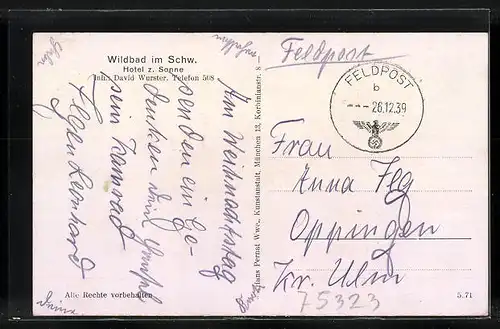 Wildbad im Schw.
Hotel z. Sonne
Inh.: David Wurster. Telefon 508
Am Weihnachtstag
senden ein Ge-
denken und
sein Kamrad
Alle Rechte vorbehalten
Hans Pernat Wwe., Kunstanstalt, München 13, Korbinianstr. 8
Feldpost
FELDPOST
b
26.12.39
Frau
Anna
Oppingen
Kr. Ulm
75323
5.71